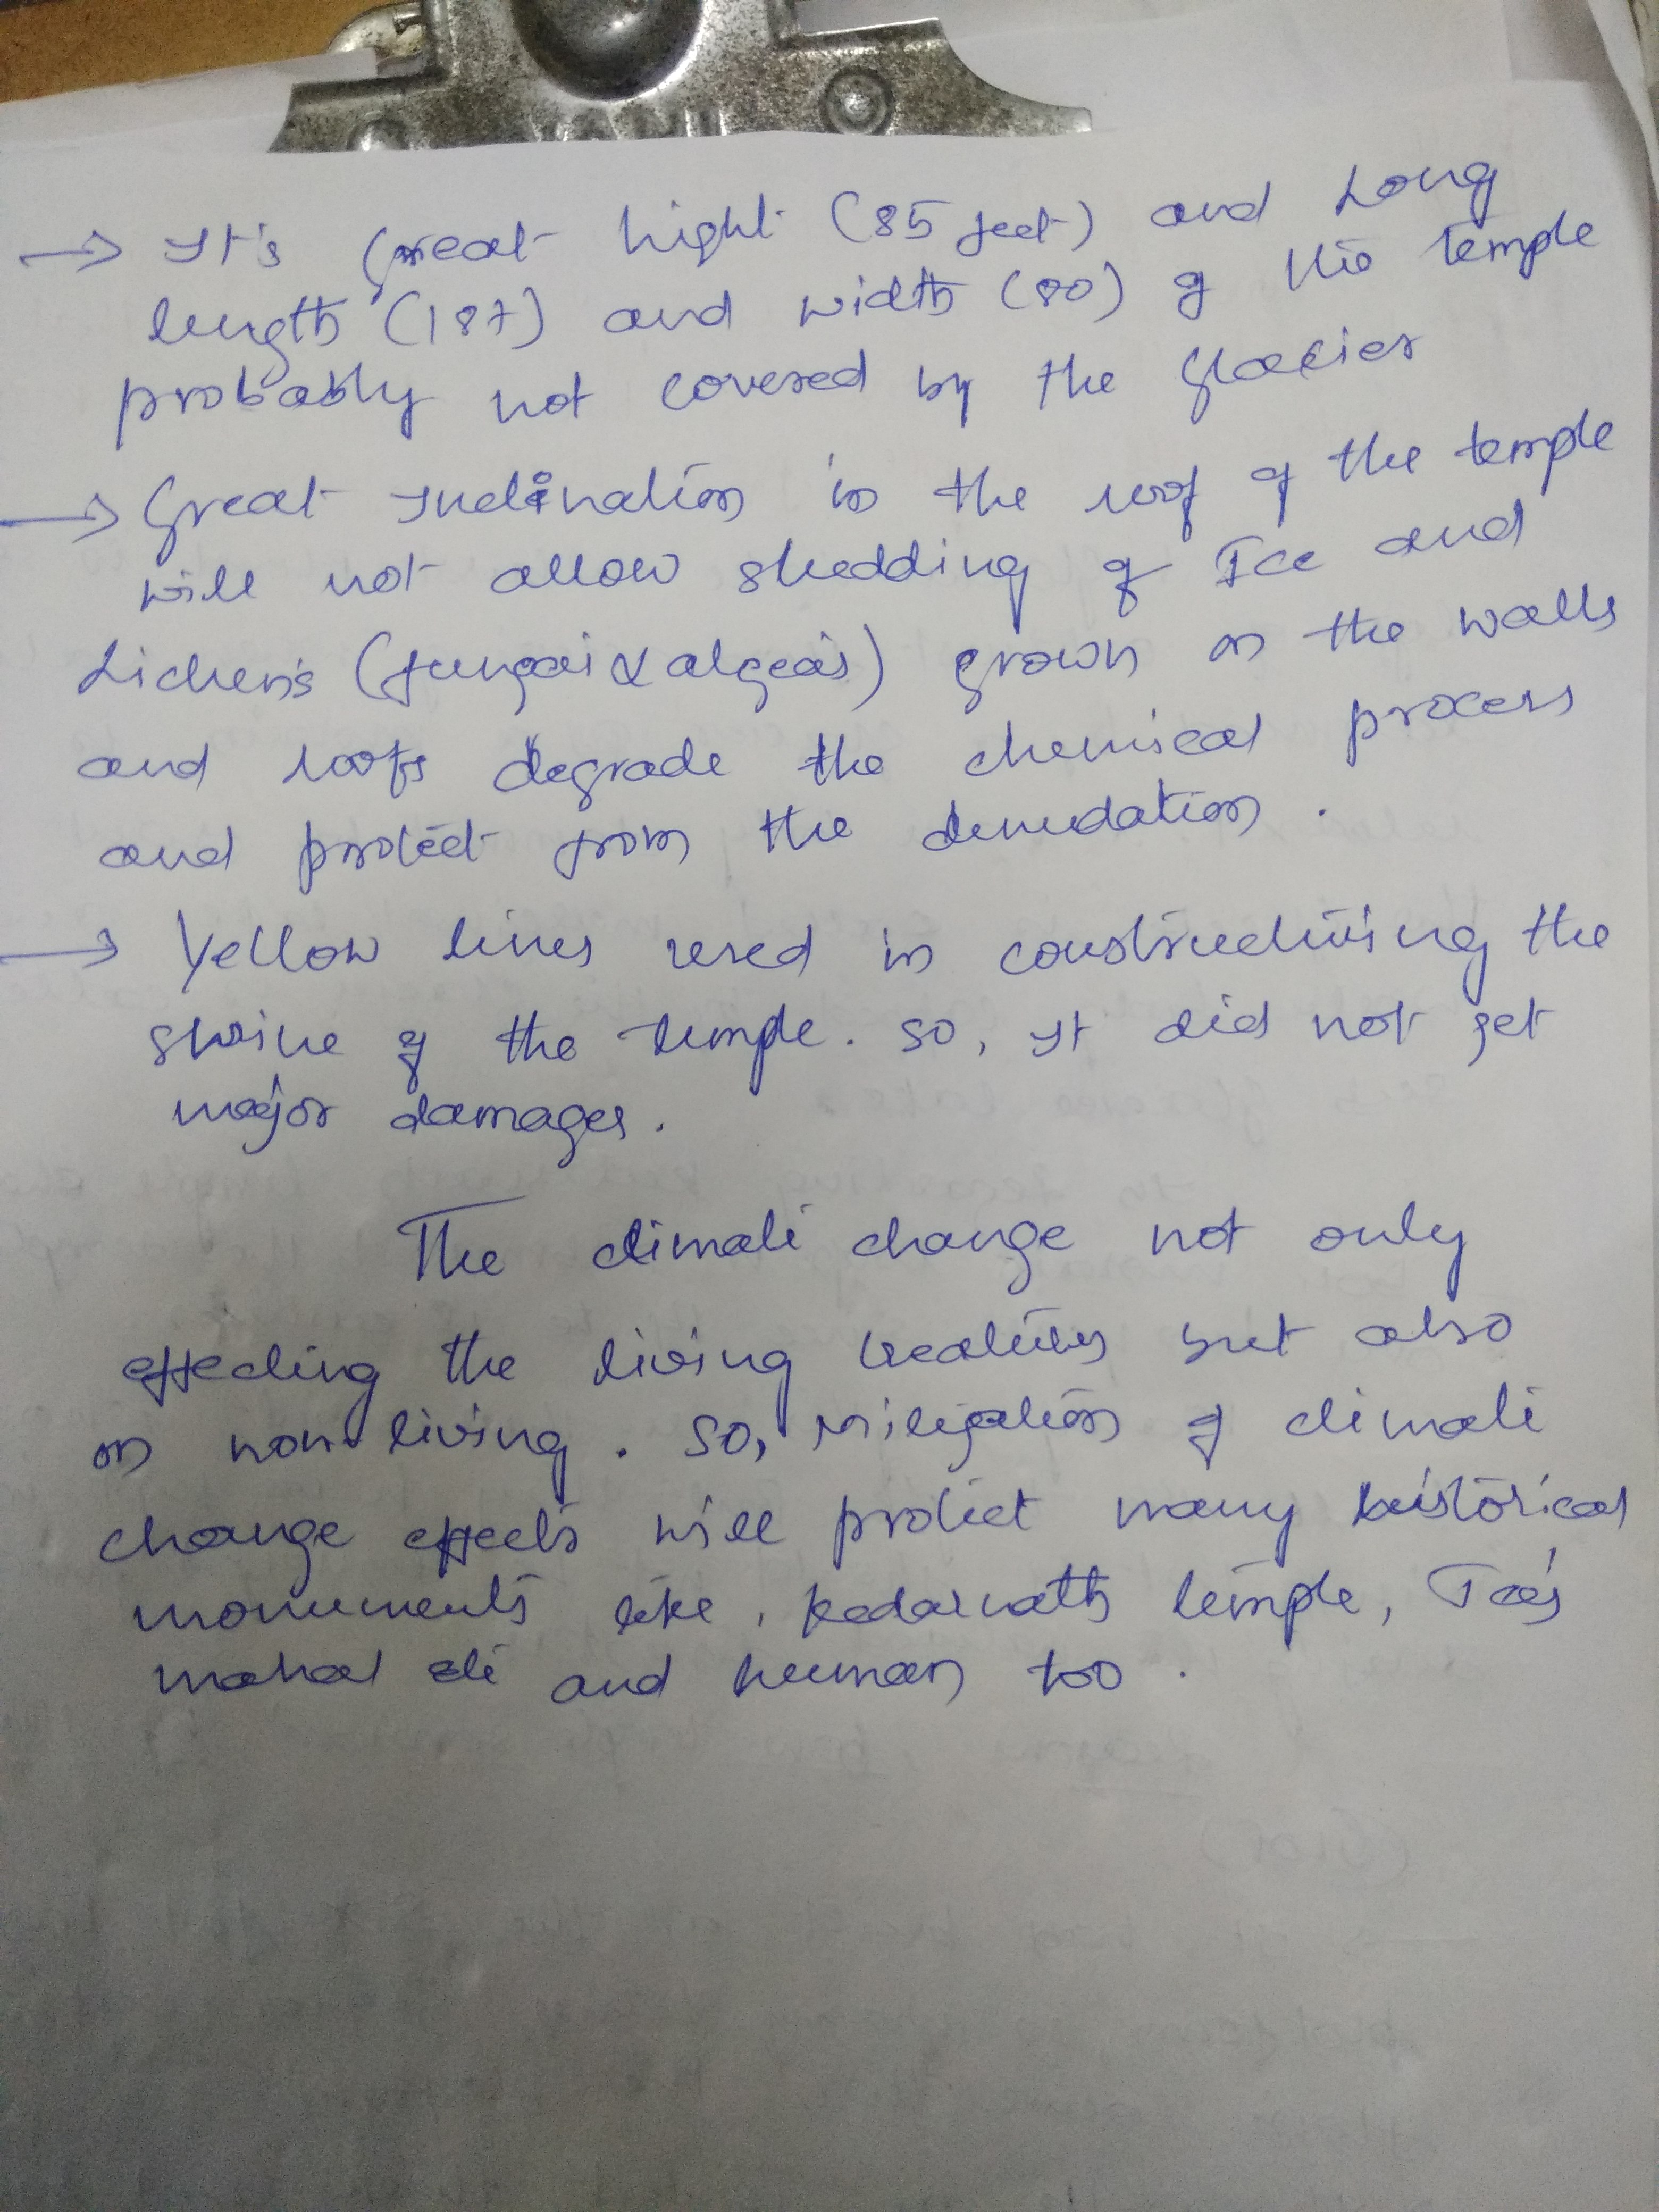 → It's Great hight (85 feet) and Long
length (187) and width (80) of the temple
probably not covered by the Glacier
→ Great Inclination in the roof of the temple
will not allow shedding of Ice and
Lichen's (fungai & algeas) grown on the walls
and roofs degrade the chemical process
and protect from the denudation.
→ Yellow lines used in constructining the
shrine of the temple. So, It did not get
major damages.
The climate change not only
effecting the living creatures but also
on non living. So, Mitigation of climate
change effects will protect many historical
monuments like, kedarnath temple, Taj
mahal etc and human too.